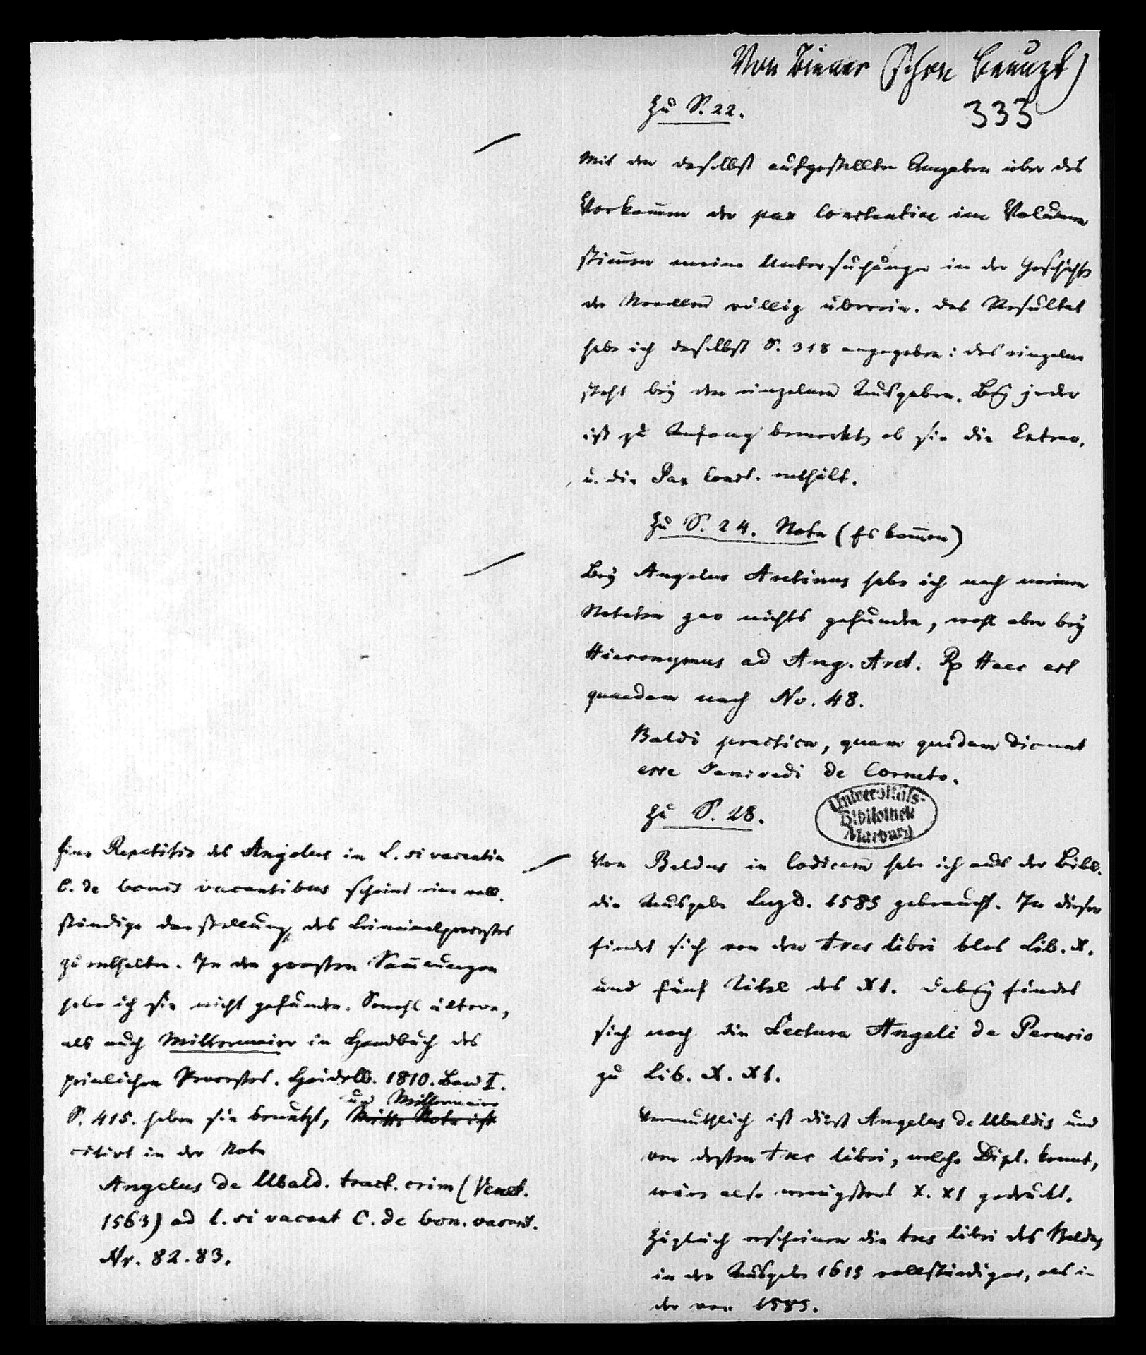 Von Biener (schon benutzt)
333
Zu S. 22.
Mit den daselbst aufgestellten Angaben über das
Vorkom̄en der pax Constantiae im Volumen
stim̄en meine Untersuchungen in der Geschichte
der Novellen völlig überein. Das Resultat
habe ich daselbst S. 318 angegeben: das einzelne
steht bey den einzelnen Ausgaben. Bey jeder
ist zu Anfang bemerkt, ob sie die Extrav.
u. die Pax Const. enthält.
Zu S. 24. Nota (Es kom̄en)
Bey Angelus Aretinus habe ich nach meinen
Notaten gar nichts gefunden, wohl aber bey
Hieronymus ad Ang. Aret. Rp Haec est
quaedam nach No. 48.
Baldi practica, quam quidam dicunt
esse de Corneto.
Zu S. 28.
Universitäts-
Bibliothek
Marburg
Von Baldus in Codicem habe ich aus der Bibl.
die Ausgabe Lugd. 1585 gebraucht. In dieser
findet sich von den tres libri blos Lib. X.
und fünf Titel des XI. Dabey findet
sich noch die Lectura Angeli de Perusio
zu Lib. X. XI.
Vermuthlich ist dieß Angelus de Ubaldis und
von dessen tres libri, welche Dipl. kennt,
wäre also wenigstens X. XI gedruckt.
Zugleich erscheinen die tres libri des Baldus
in der Ausgabe 1615 vollständiger, als in
der von 1585.
Eine Repetitio des Angelus in L. si vacantia
C. de bonis vacantibus scheint eine voll-
ständige Darstellung des Criminalprocesses
zu enthalten. In den großen Sam̄lungen
habe ich sie nicht gefunden. Sowohl ältere,
als auch Mittermaier in Handbuch des
peinlichen Processes. Heidelb. 1810. Band I.
S. 415. haben sie benutzt, und Mittermaier
citirt in der Nota
Angelus de Ubald. tract. crim (Venet.
1563) ad l. si vacant C. de bon. vacant.
Nr. 82. 83.